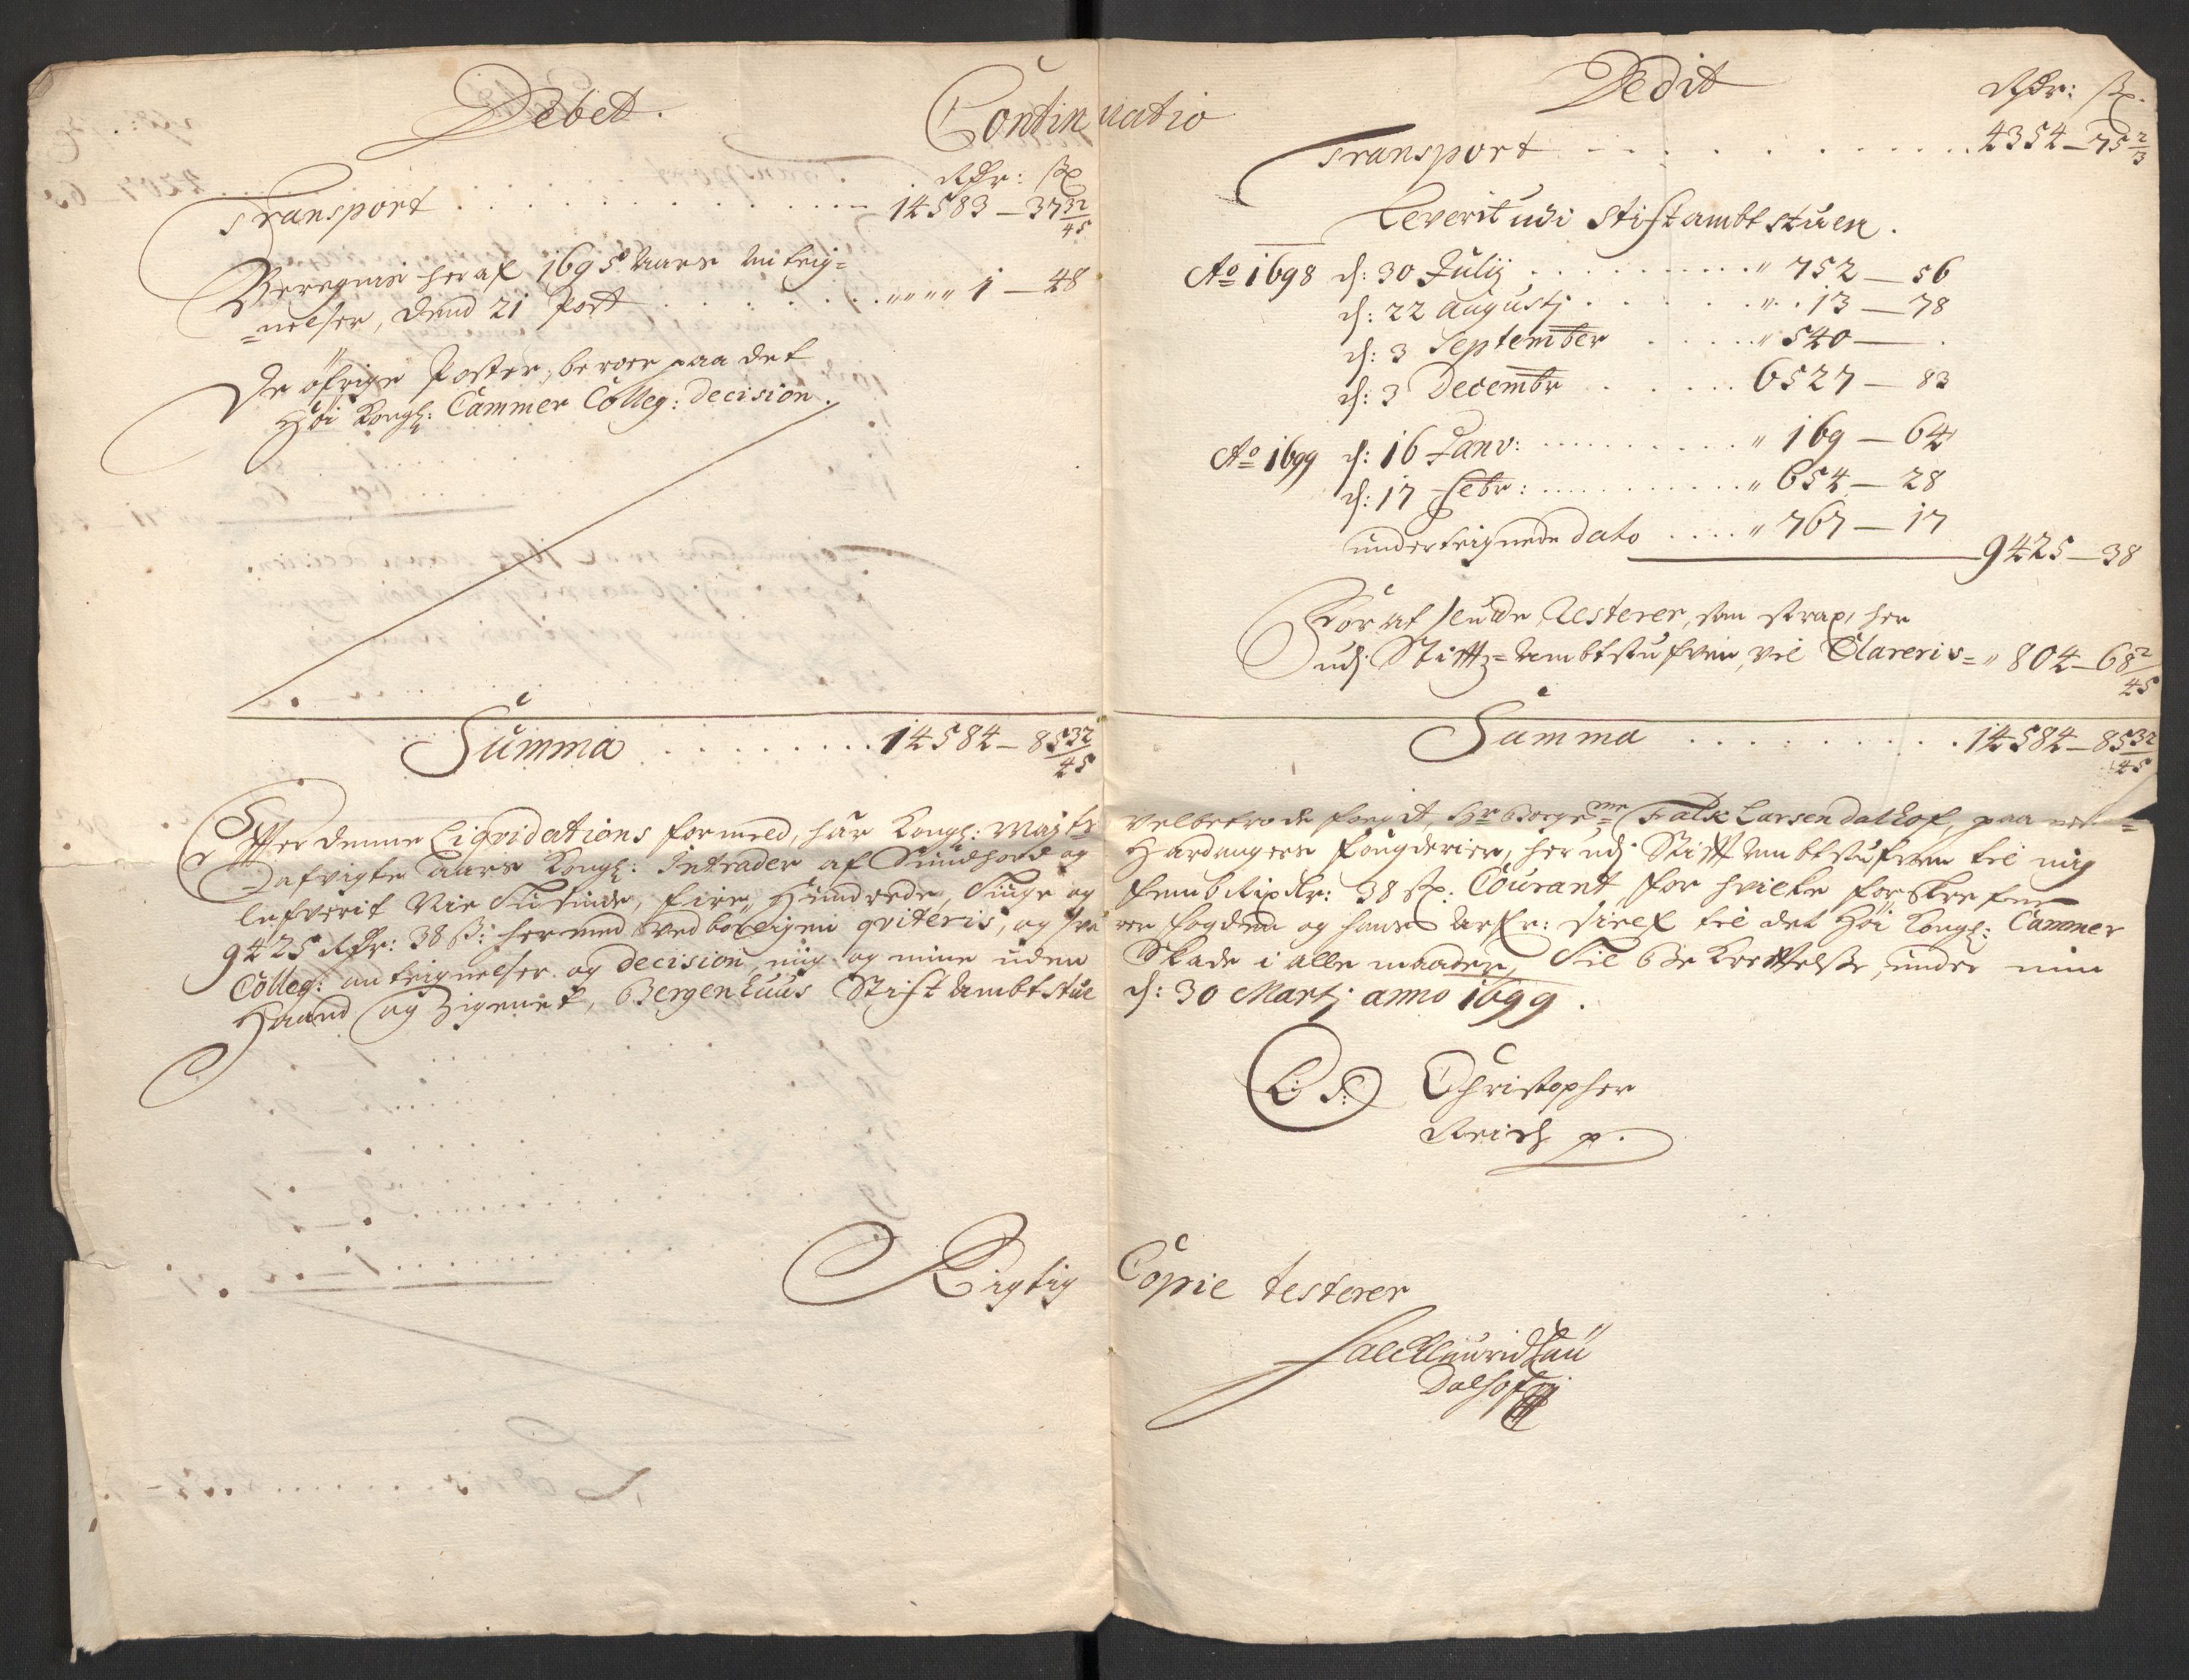 Debet.
Continuatio
Rdr: ß
Transport . . . . . . . . 14583 – 37 32/45
Beregnis heraf 1695 Aars Anteig=
=nelser, dend 21 Post . . . . . . . . """" 1 – 48
De öfrige Poster, beroer paa det
Höi Kongl: Cammer Colleg: Decision.
Summa . . . . . . . . 14584 – 85 32/45
Dedit
Rdr: ß.
Transport . . . . . . . . 4354 – 75 2/3
Leverit udi Stiftambtstuen.
Ao 1698 d: 30 Julij . . . . . . . . " 752 – 56
d: 22 Augustj . . . . . . . " . 13 – 78
d: 3 September . . . . . " 540 – .
d: 3 Decembr . . . . . . 6527 – 83
Ao 1699 d: 16 Janv: . . . . . . . . " 169 – 64
d: 17 Febr: . . . . . . . . " 654 – 28
underteignede dato . . . . " 767 – 17
9425 – 38
Foruden Resterer, som strax her
udj Stiftz=Ambtstufven, vil Clareris = " 804 – 68 2/45
Summa . . . . . . . . 14584 – 85 32/45
Efter denne Liqvidations formeld, har Kongl: Mayts velbetrode foget, Sr Falk Larsen Dalhof, paa
afvigte Aars Kongl: Intrader af Sundhord og Hardangers fougderier, her udj Stift Ambtstufven til mig
lefverit Nie Tusinde, fire Hundrede, Tiuge og femb Rixdlr: 38 ß. Courant, for hvilke forskrefne
9425 Rdr: 38 ß: hermed ved börligen qviteris, og fogden og hans Arfr: til det Höi Kongl: Cammer
Colleg: anteignelser og Decision, mig og mine uden Skade i alle maader, Til Bekreftelse, under min
Haand og Zignet, Bergenhuus Stift Ambtstue d: 30 Martj anno 1699.
L. S. Christopher
Reich p.
Rigtig Copie testerer
Falck Lauridtzen
Dalhof